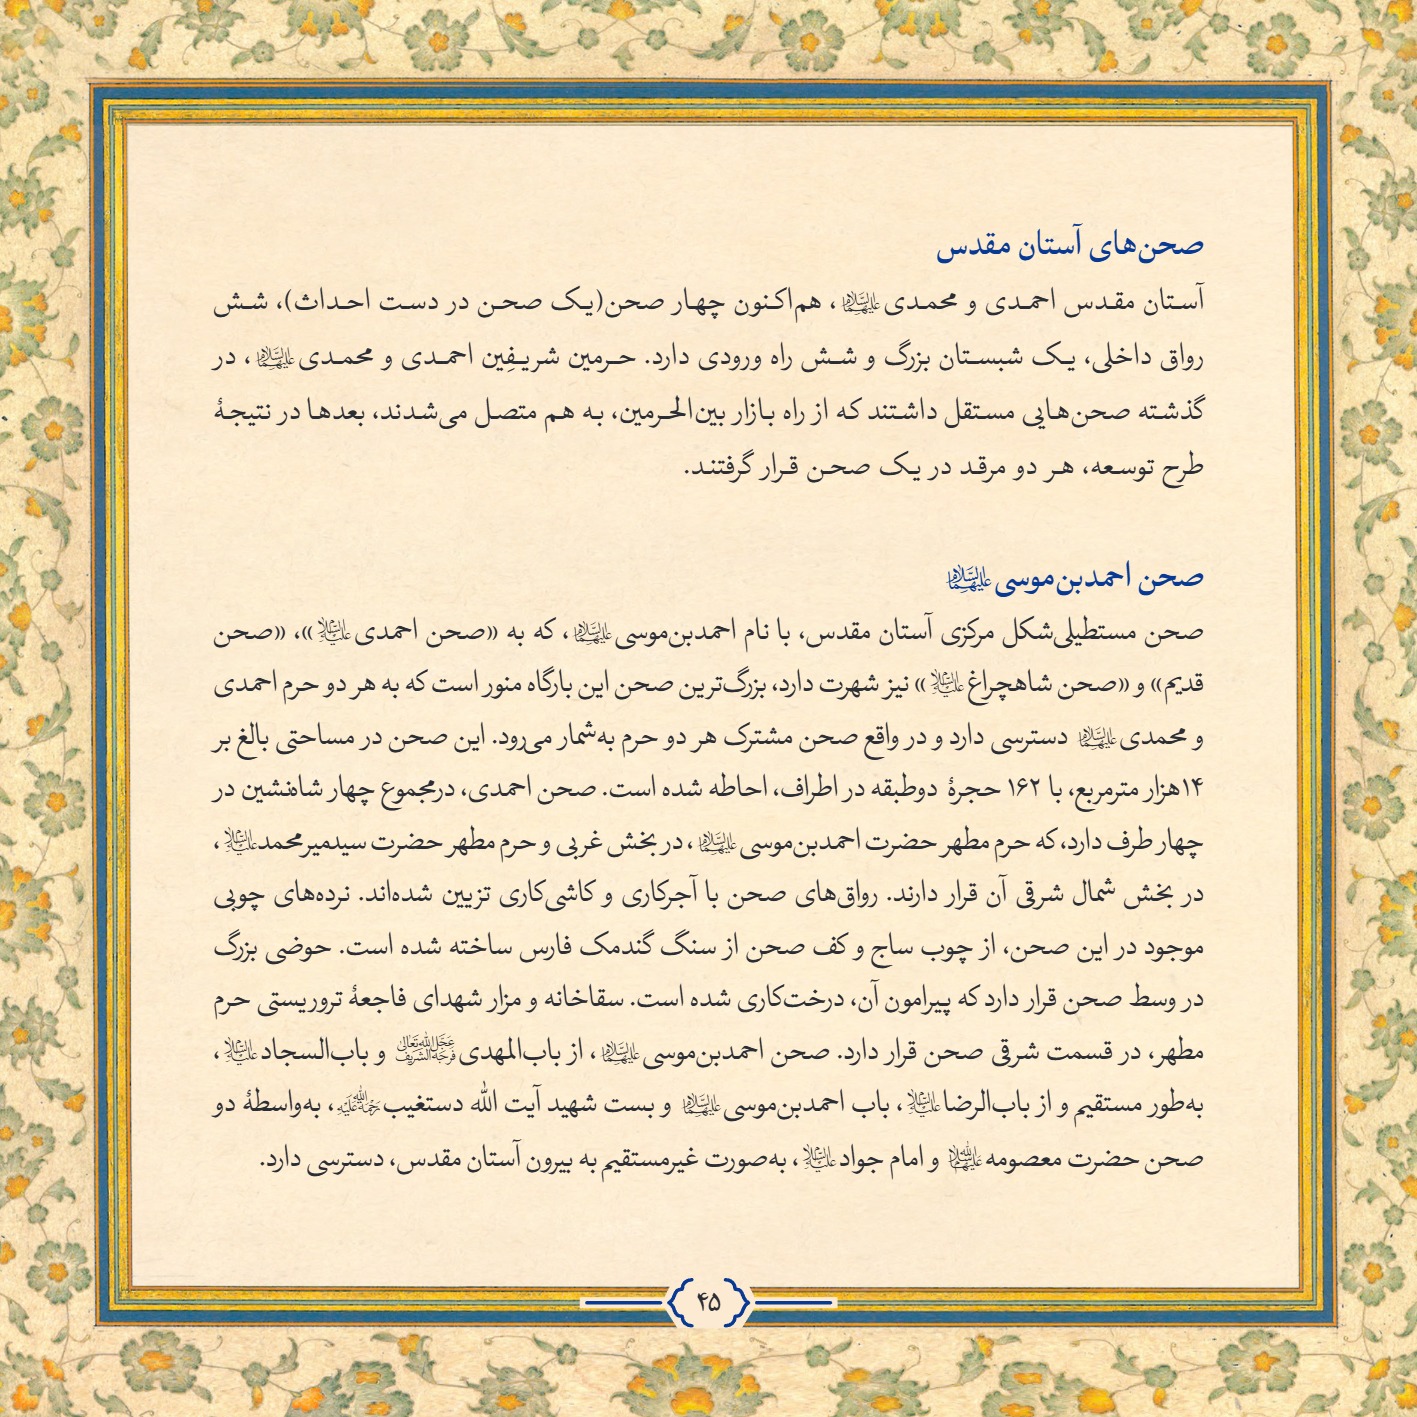 صحن‌های آستان مقدس
آستان مقدس احمدی و محمدی علیهما السلام، هم‌اکنون چهار صحن(یک صحن در دست احداث)، شش
رواق داخلی، یک شبستان بزرگ و شش راه ورودی دارد. حرمین شریفِین احمدی و محمدی علیهما السلام، در
گذشته صحن‌هایی مستقل داشتند که از راه بازار بین‌الحرمین، به هم متصل می‌شدند، بعدها در نتیجۀ
طرح توسعه، هر دو مرقد در یک صحن قرار گرفتند.
صحن احمدبن‌موسی علیهما السلام
صحن مستطیلی‌شکل مرکزی آستان مقدس، با نام احمدبن‌موسی علیهما السلام، که به «صحن احمدی علیه السلام»، «صحن
قدیم» و «صحن شاهچراغ علیه السلام» نیز شهرت دارد، بزرگ‌ترین صحن این بارگاه منور است که به هر دو حرم احمدی
و محمدی علیهما السلام دسترسی دارد و در واقع صحن مشترک هر دو حرم به‌شمار می‌رود. این صحن در مساحتی بالغ بر
۱۴هزار مترمربع، با ۱۶۲ حجرۀ دوطبقه در اطراف، احاطه شده است. صحن احمدی، درمجموع چهار شاه‌نشین در
چهار طرف دارد، که حرم مطهر حضرت احمدبن‌موسی علیهما السلام، در بخش غربی و حرم مطهر حضرت سیدمیرمحمد علیه السلام،
در بخش شمال شرقی آن قرار دارند. رواق‌های صحن با آجرکاری و کاشی‌کاری تزیین شده‌اند. نرده‌های چوبی
موجود در این صحن، از چوب ساج و کف صحن از سنگ گندمک فارس ساخته شده است. حوضی بزرگ
در وسط صحن قرار دارد که پیرامون آن، درخت‌کاری شده است. سقاخانه و مزار شهدای فاجعۀ تروریستی حرم
مطهر، در قسمت شرقی صحن قرار دارد. صحن احمدبن‌موسی علیهما السلام، از باب‌المهدی عجل الله تعالی فرجه الشریف و باب‌السجاد علیه السلام،
به‌طور مستقیم و از باب‌الرضا علیه السلام، باب احمدبن‌موسی علیهما السلام و بست شهید آیت الله دستغیب رحمة الله علیه، به‌واسطۀ دو
صحن حضرت معصومه سلام الله علیها و امام جواد علیه السلام، به‌صورت غیرمستقیم به بیرون آستان مقدس، دسترسی دارد.
۴۵